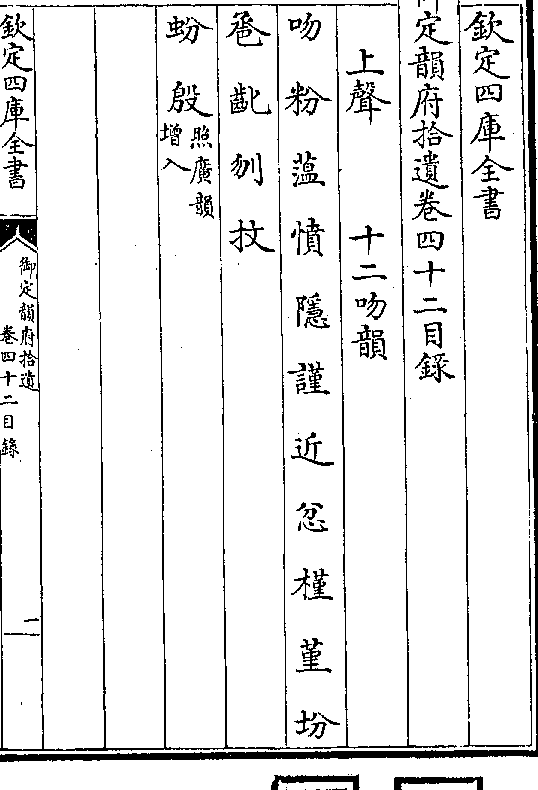 欽定四庫全書
定韻府拾遺卷四十二目錄
上聲 十二吻韻
吻粉藴憤隱謹近忿槿堇坋
㔩齔刎抆
蚡殷照廣韻
增入
欽定四庫全書
御定韻府拾遺
卷四十二目錄
二